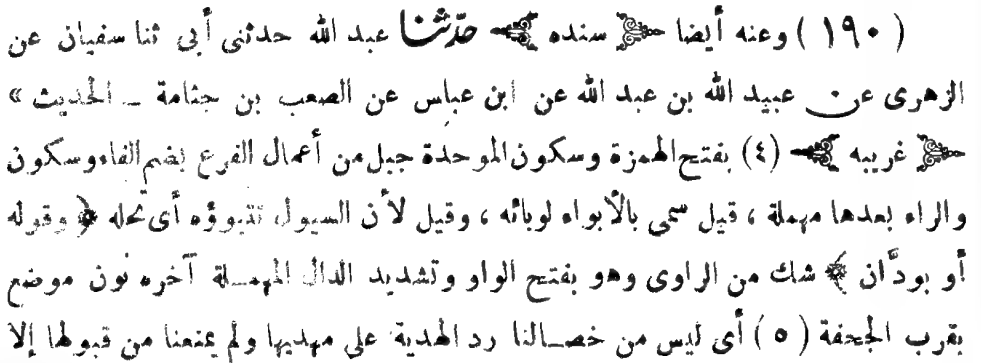 ( ١٩٠ ) وعنه أيضا ﴿ سنده ﴾ حدّثنا عبد الله حدثنى أبى ثنا سفيان عن
الزهرى عن عبيد الله بن عبد الله عن ابن عباس عن الصعب بن جثامة ــ الحديث »
﴿ غريبه ﴾ (٤) بفتح الهمزة وسكون الموحدة جبل من أعمال الفرع بضم الفاء وسكون
والراء بعدها مهملة ، قيل سمى بالأبواء لوبائه ، وقيل لأن السيول تتبوؤه أى تحله ﴿ وقوله
أو بودَّان ﴾ شك من الراوى وهو بفتح الواو وتشديد الدال المهملة آخره نون موضع
بقرب الجحفة ( ٥ ) أى ليس من خصالنا رد الهدية على مهديها ولم يمنعنا من قبولها إلا